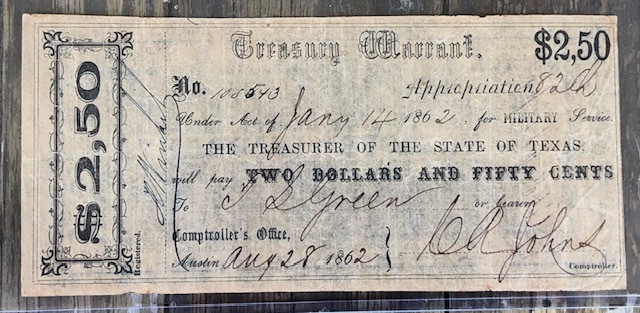 Treasury Warrant.
$2,50
$2,50
No. 108543
Appropriation 82d
Under Act of Jany 14 1862, for MILITARY Service.
THE TREASURER OF THE STATE OF TEXAS,
will pay TWO DOLLARS AND FIFTY CENTS
To T S Green or bearer
Comptroller's Office,
Austin, Aug 28 1862
C R Johns
Comptroller.
Registered.